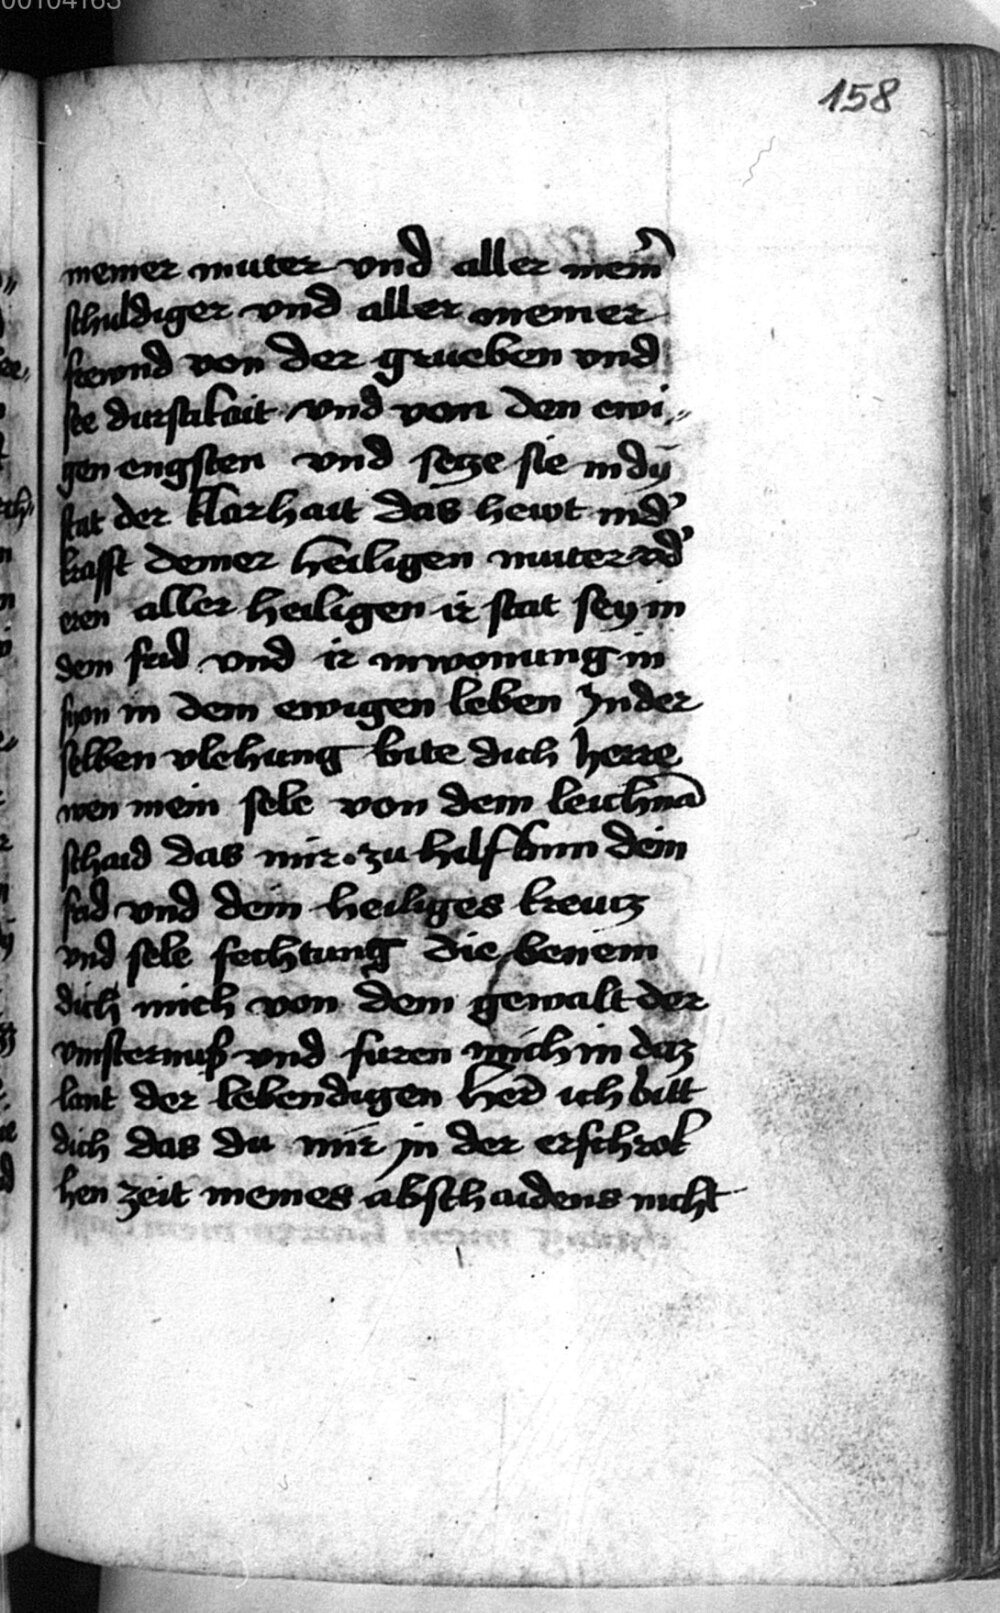 00104163
158
meiner muter vnd aller mein̄
schuldiger vnd aller meiner
frewnd von der grueben vnd
see durstikait vnd von den ewi„
gen engsten vnd secze sie in dÿ
stat der klarhait das hewt in d'
krafft deiner heiligen muter vn̄ d'
eren aller heiligen ir stat sey in
dem frid vnd ir inwonung in
syon in dem ewigen leben In der
selben vlehung bite dich herre
wen mein sele von dem leichnā
schaid das mir zu hilf kum dein
frid vnd dein heiliges kreucz
vnd sele fechtung die benem
dich mich von dem gewalt der
vinsternuß vnd furen mich in daz
lant der lebendigen her̄ ich bitt
dich das du mir in der erschrok
hen zeit meines abschaidens nicht